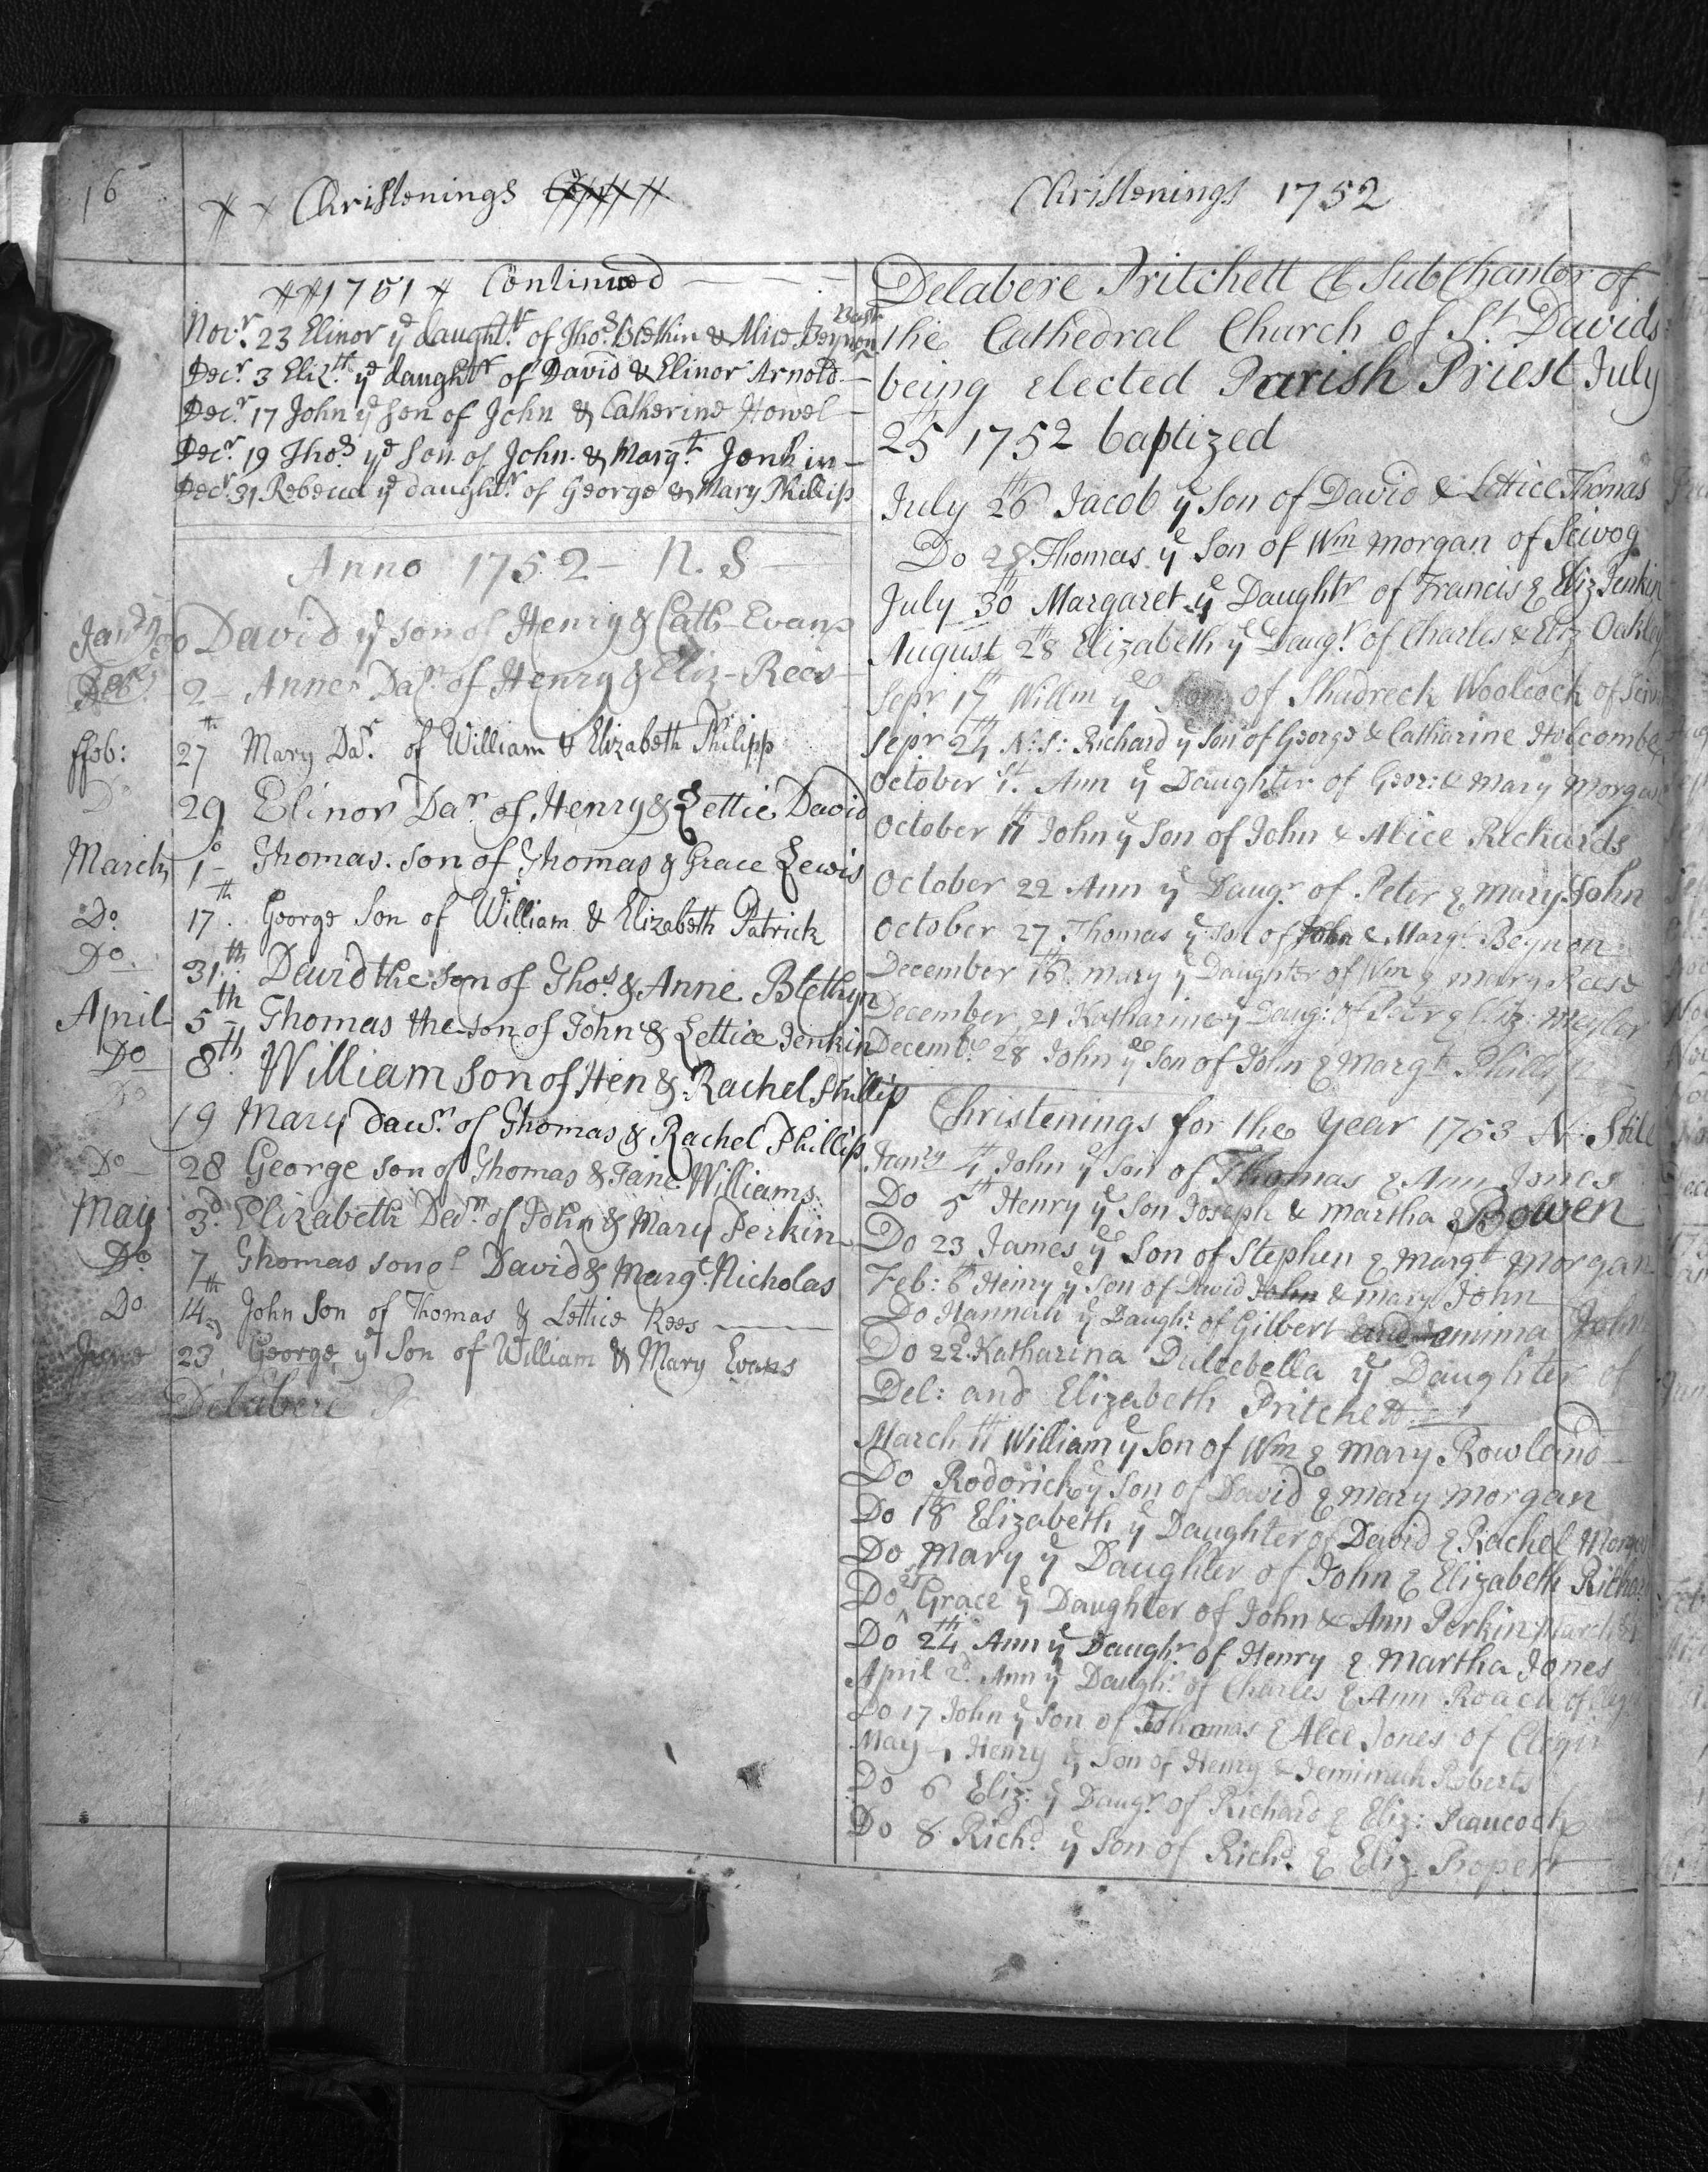 16
Christenings
1751 Continued
Novr. 23 Elinor ye daughtr. of Thos. Blethin & Alice Beynon Bastr
Decr. 3 Eliz.th ye daughtr of David & Elinor Arnold
Decr. 17 John ye Son of John & Catherine Howel
Decr. 19 Thos. ye Son of John & Margt. Jenkin
Decr. 31 Rebecca ye daughtr. of George & Mary Phillip
Anno 1752 - N. S
Janry 30 David ye son of Henry & Cath- Evans
2 - Anne Dar. of Henry & Eliz- Rees
ffeb: 27th Mary Dar. of William & Elizabeth Philipp
29 Elinor Dar. of Henry & Lettie David
March 1 - Thomas. son of Thomas & Grace Lewis
Do. 17th. George Son of William & Elizabeth Patrick
Do. 31th. David the son of Thos. & Anne Blethyn
April 5th - Thomas the son of John & Lettice Jenkin
Do 8th. William Son of Hen & Rachel Phillip
Do 19 Mary Dawr. of Thomas & Rachel Phillip
Do 28 George son of Thomas & Jane Williams
May 3d. Elizabeth Dar. of John & Mary Perkin
Do. 7 Thomas son of David & Margt. Nicholas
Do 14th John Son of Thomas & Lettice Rees
June 23 George ye Son of William & Mary Evans
Delabere P
Christenings 1752
Delabere Pritchett Sub Chantor of
the Cathedral Church of St. Davids
being elected Parish Priest July
25th 1752 baptized
July 26th Jacob ye Son of David & Lettice Thomas
Do 28 Thomas ye Son of Wm Morgan of Scivog
July 30th Margaret ye Daughtr of Francis & Eliz Jenkin
August 28th Elizabeth ye Daugr. of Charles & Eliz Oakley
Sepr 17th Willm ye Son of Shadreck Woolcock of
Sepr 24th N: S: Richard ye Son of George & Catharine Holcombe
October 1st. Ann ye Daughter of Geor: & Mary Morgan
October 11 John ye Son of John & Alice Richards
October 22 Ann ye Daugr. of Peter & Mary John
October 27 Thomas ye Son of John & Margt. Beynon
December 16th. Mary ye Daughter of Wm & Mary Reese
December 21 Katharine ye Daug: of Peter & Eliz: Meyler
Decembr 28 John ye Son of John & Margt Phillip
Christenings for the Year 1753 N. Stile
Janry 4 John ye Son of Thomas & Ann Jones
Do 5th Henry ye Son Joseph & Martha Bowen
Do 23 James ye Son of Stephen & Margt Morgan
Feb: 6 Henry ye Son of David John & Mary John
Do Hannah ye Daughr. of Gilbert and Jemima John
Do 22d. Katharina Dulcebella ye Daughter of
Del: and Elizabeth Pritchett
March 11 William ye Son of Wm & Mary Rowland
Do Roderick ye Son of David & Mary Morgan
Do 18th Elizabeth ye Daughter of David & Rachel
Do Mary ye Daughter of John & Elizabeth
Do 21 Grace ye Daughter of John & Ann Perkin March
Do 24th Ann ye Daughr. of Henry & Martha Jones
April 2d. Ann ye Daughr. of Charles & Ann Roach of
Do 17 John ye Son of Thomas & Alce Jones of Clegir
May 1 Henry ye Son of Henry & Jemimah Roberts
Do 6 Eliz: ye Daugr. of Richard & Eliz: Peaucock
Do 8 Richd. ye Son of Richd. & Eliz. Propert